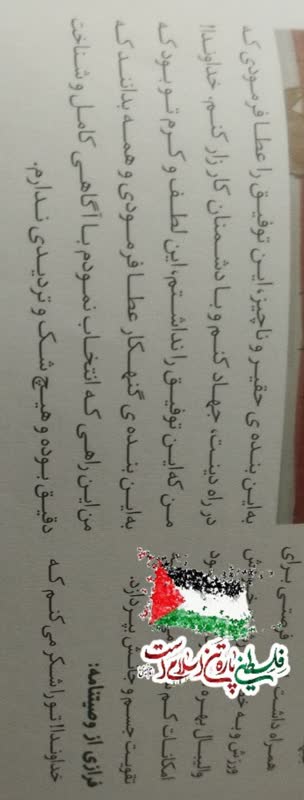 فرصتی برای
همراه داشت خویش
ورزش و به
والیبال بهره
امکانات کم
تقویت جسم و جانش بپردازد.
فرازی از وصیتنامه:
خداوندا! تو را شکر می کنم که
به این بنده ی حقیر و ناچیز، این توفیق را عطا فرمودی که
در راه دینت، جهاد کنم و با دشمنان کارزار کنم. خداوندا!
من که این توفیق را نداشتم، این لطف و کرم تو بود که
به این بنده ی گنهکار عطا فرمودی و همه بدانند که
من این راهی که انتخاب نمودم با آگاهی کامل و شناخت
دقیق بوده و هیچ شک و تردیدی ندارم.
فلسطین پاره تن اسلام است